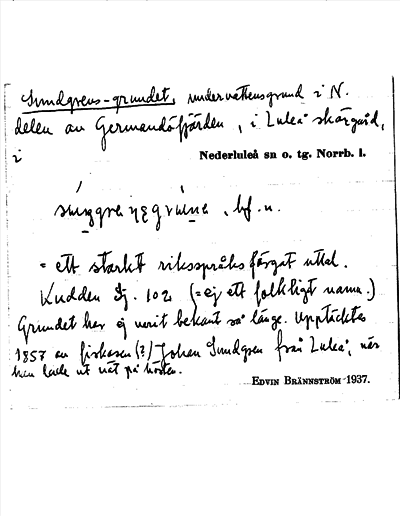 Sundgrens-grundet, undervattensgrund i N.
delen av Germandöfjärden, i Luleå skärgård,
i
Nederluleå sn o. tg. Norrb. l.
bf. n.
= ett starkt riksspråksfärgat uttal.
Kudden Sj. 102 (= ej ett folkligt namn.)
Grundet har ej varit bekant så länge. Upptäcktes
1857 av fiskaren (?) Johan Sundgren från Luleå, när
han lade ut nät på hösten.
EDVIN BRÄNNSTRÖM 1937.